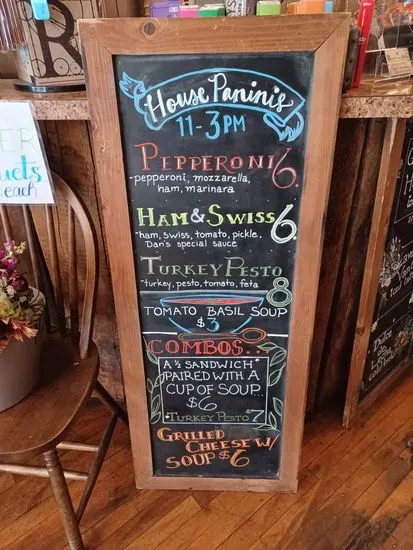 R
House Paninis
11-3PM
PEPPERONI 6.
-pepperoni, mozzarella,
ham, marinara
HAM & SWISS 6.
-ham, swiss, tomato, pickle,
Dan's special sauce
TURKEY PESTO 8
-turkey, pesto, tomato, feta
TOMATO BASIL SOUP
$3
COMBOS
A ½ SANDWICH
PAIRED WITH A
CUP OF SOUP...
$6
-TURKEY PESTO $7
GRILLED
CHEESE W/
SOUP $6
each